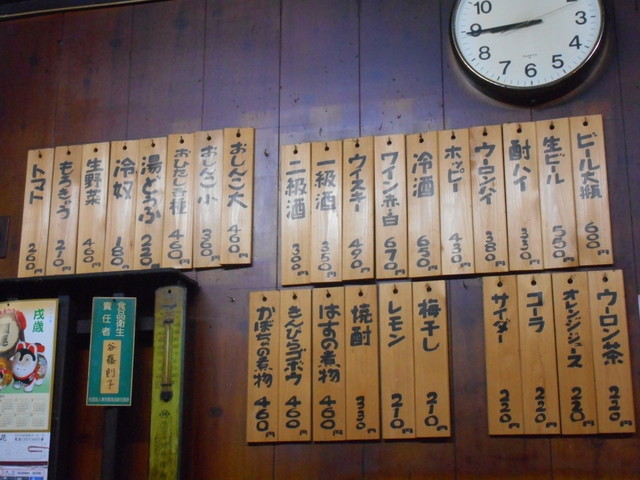 おしんこ大 400円
おしんこ小 360円
おしたし各種 460円
湯どうふ 230円
冷奴 180円
生野菜 400円
もろきゅう 210円
トマト 260円
ビール大瓶 600円
生ビール 550円
酎ハイ 330円
ウーロンハイ 380円
ホッピー 430円
冷酒 630円
ワイン赤・白 670円
ウイスキー 490円
一級酒 350円
二級酒 300円
梅干し 210円
レモン 210円
焼酎 330円
はすの煮物 460円
きんぴらゴボウ 460円
かぼちゃの煮物 460円
ウーロン茶 220円
オレンジジュース 220円
コーラ 220円
サイダー 220円
食品衛生
責任者
戌歳
10 9 8 7 6 5 4 3 2